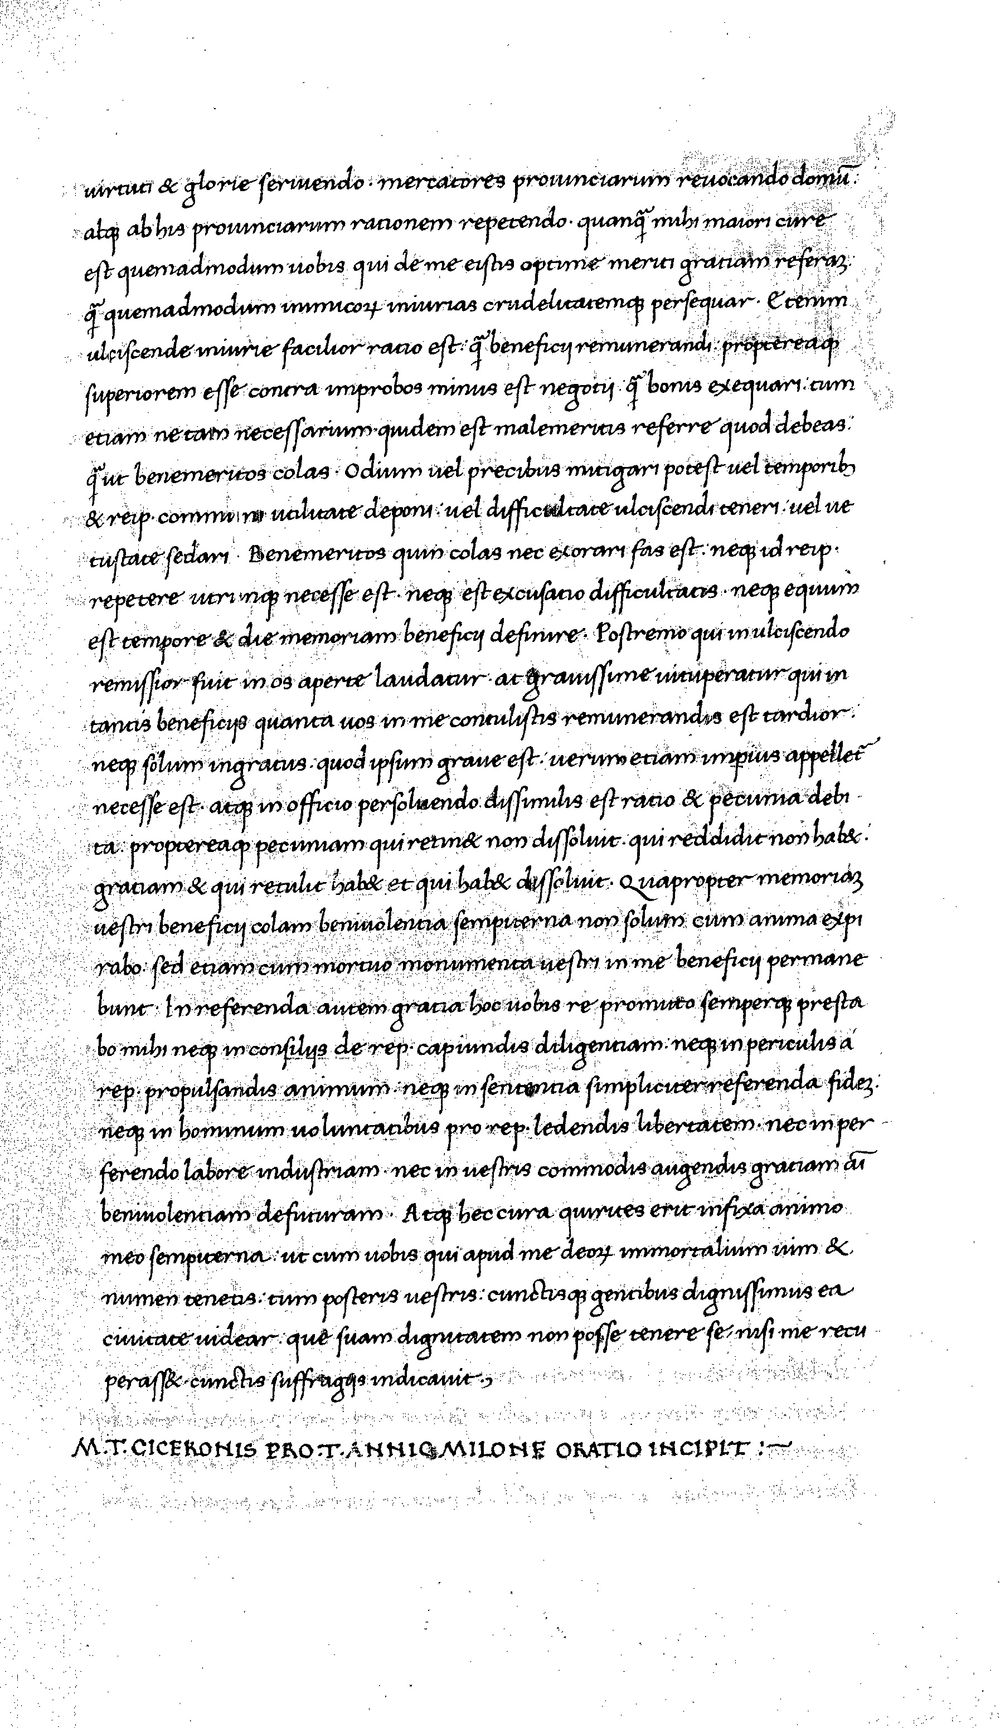 uirtuti & glorie seruiendo · mercatores prouinciarum reuocando domū :
atqꝫ ab his prouinciarum rationem repetendo · quanqꝫ̃ mihi maiori cure
est quemadmodum uobis qui de me eistis optime meriti gratiam referaꝫ
qꝫ̃ quemadmodum inimicoꝝ iniurias crudelitatemqꝫ persequar · Etenim
ulciscende iniurie facilior ratio est : qꝫ̃ beneficij remunerandi : proptereaqꝫ
superiorem esse contra improbos minus est negotij · qꝫ̃ bonis exequari : tum
etiam ne tam necessarium quidem est malemeritis referre quod debeas :
qꝫ̃ ut benemeritos colas · Odium uel precibus mitigari potest uel temporibꝫ
& reip · utilitate deponi : uel difficultate ulciscendi teneri : uel ue
tustate sedari · Benemeritos quin colas nec exorari fas est : neqꝫ id reip ·
repetere utrunqꝫ necesse est · neqꝫ est excusatio difficultatis · neqꝫ equum
est tempore & die memoriam beneficij definire · Postremo qui in ulciscendo
remissior fuit in os aperte laudatur · at grauissime uituperatur qui in
tantis beneficijs quanta uos in me contulistis remunerandis est tardior :
neqꝫ solum ingratus · quod ipsum graue est · uerum etiam impius appellet̄
necesse est · atqꝫ in officio persoluendo dissimilis est ratio & pecunia debi
ta · proptereaqꝫ pecuniam qui retin& non dissoluit · qui reddidit non hab& :
gratiam & qui retulit hab& et qui hab& dissoluit · Quapropter memoriaꝫ
uestri beneficij colam beniuolentia sempiterna non solum cum anima expi
rabo · sed etiam cum mortuo monumenta uestri in me beneficij permane
bunt · In referenda autem gratia hoc uobis re promitto semperqꝫ presta
bo mihi neqꝫ in consilijs de rep · capiundis diligentiam · neqꝫ in periculis á
rep · propulsandis animum · neqꝫ in sententia simpliciter referenda fideꝫ :
neqꝫ in hominum uoluntatibus pro rep · ledendis libertatem · nec in per
ferendo labore industriam · nec in uestris commodis augendis gratiam aī
beniuolentiam defuturam · Atqꝫ hec cura quirites erit infixa animo
meo sempiterna : ut cum uobis qui apud me deoꝝ immortalium uim &
numen tenetis : tum posteris uestris : cunctisqꝫ gentibus dignissimus ea
ciuitate uidear · que suam dignitatem non posse tenere se , nisi me recu
perass& · cunctis suffragijs indicauit ·,
M . T . CICERONIS PRO . T . ANNIO MILONE ORATIO INCIPIT : ~